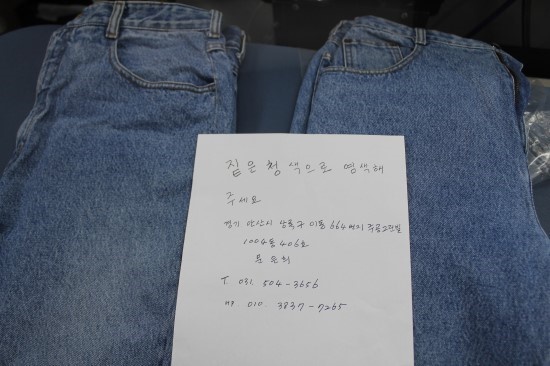 짙은 청색으로 염색해
주세요
경기 안산시 상록구 이동 664번지 주공2단지
1004동 406호
문은희
T. 031. 504-3656
HP 010. 3837-7265